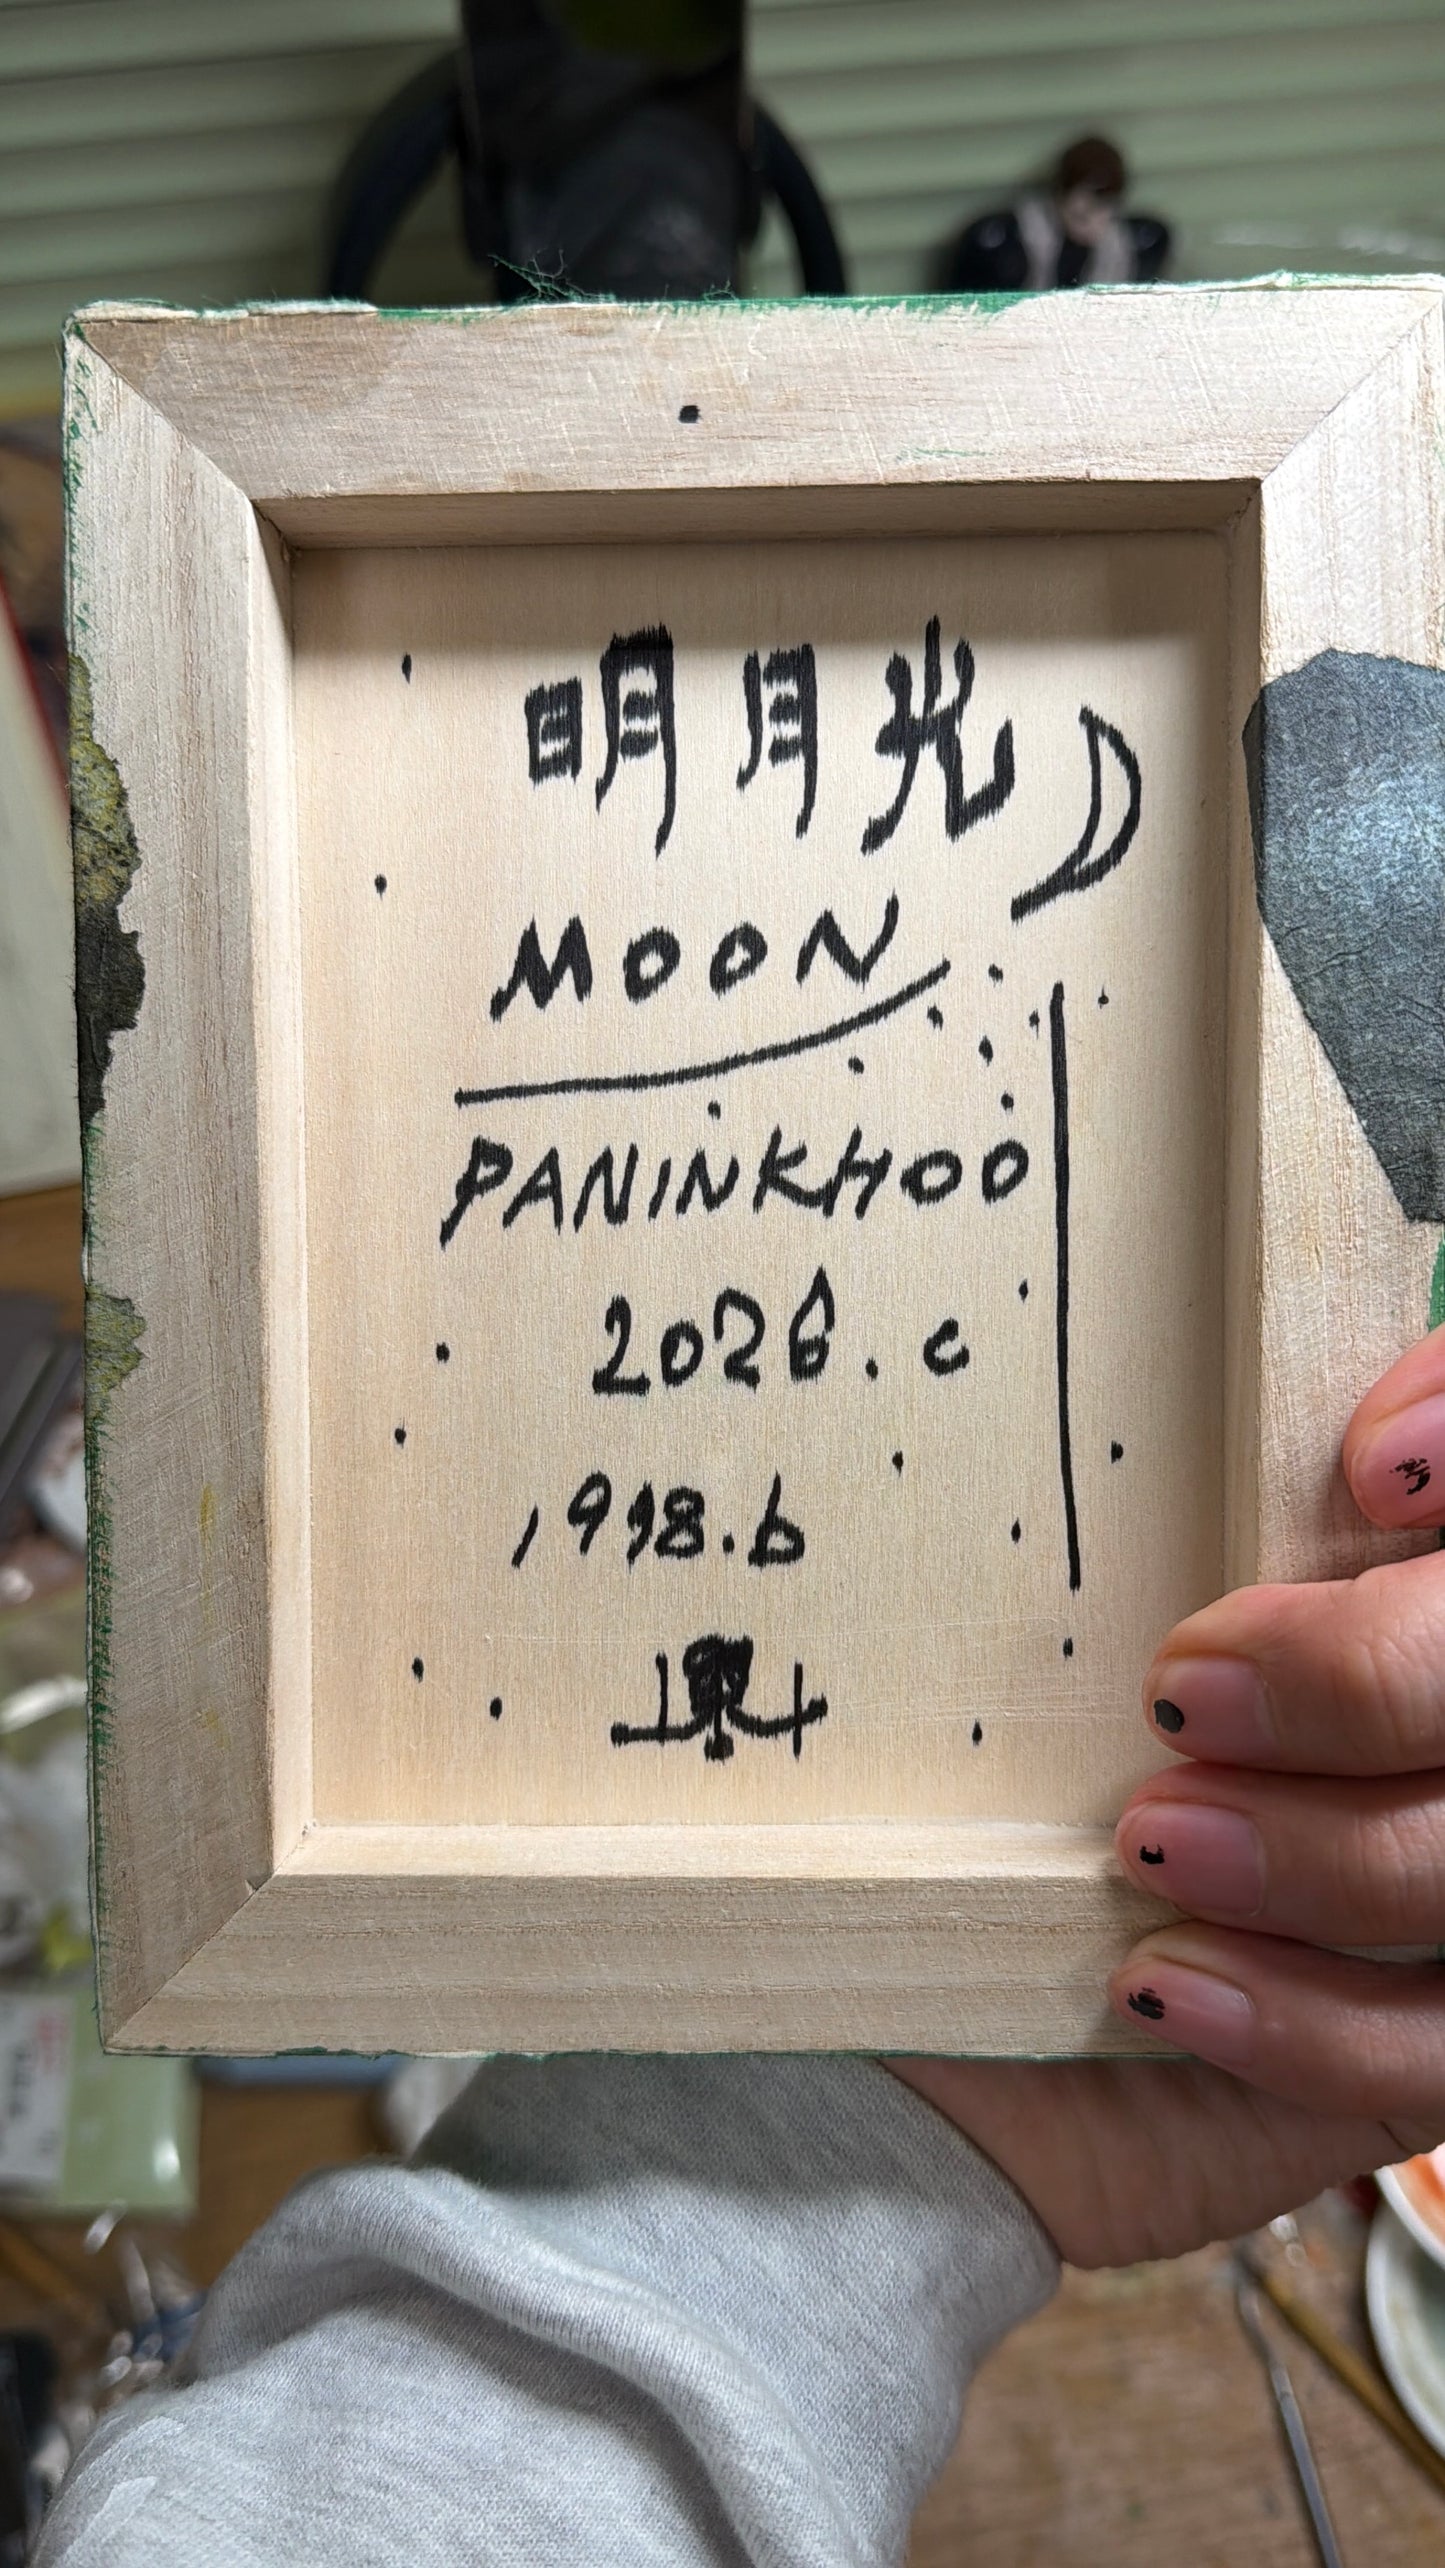 明月光
MOON
PANINKHOO
2026.c
1998.b